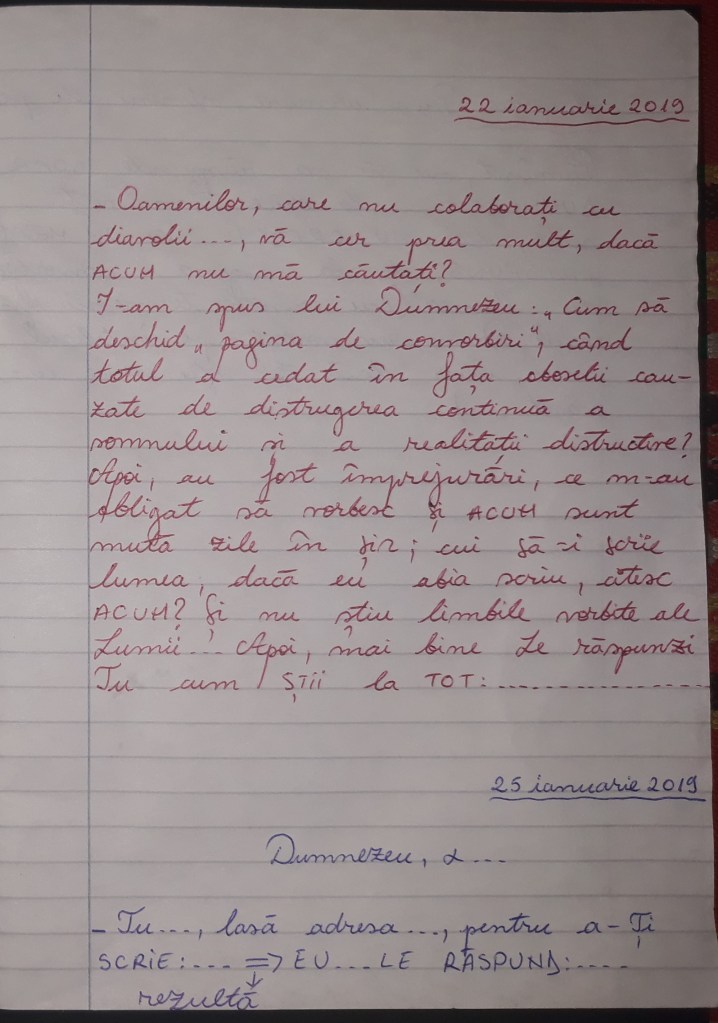 22 ianuarie 2019
- Oamenilor, care nu colaborați cu
diavolii..., vă cer prea mult, dacă
ACUM nu mă căutați?
I-am spus lui Dumnezeu: „Cum să
deschid „pagina de convorbiri", când
totul a cedat în fața oboselii cau-
zate de distrugerea continuă a
somnului și a realității distructive?
Apoi, au fost împrejurări, ce m-au
obligat să vorbesc și ACUM sunt
mută zile în șir; cui să-i scrie
lumea, dacă eu abia scriu, citesc
ACUM? Și nu știu limbile vorbite ale
Lumii... Apoi, mai bine Le răspunzi
Tu cum ȘTII la TOT:..................
25 ianuarie 2019
Dumnezeu, α ...
- Tu..., lasă adresa..., pentru a-Ți
SCRIE:.... => EU... LE RĂSPUND:....
↓
rezultă